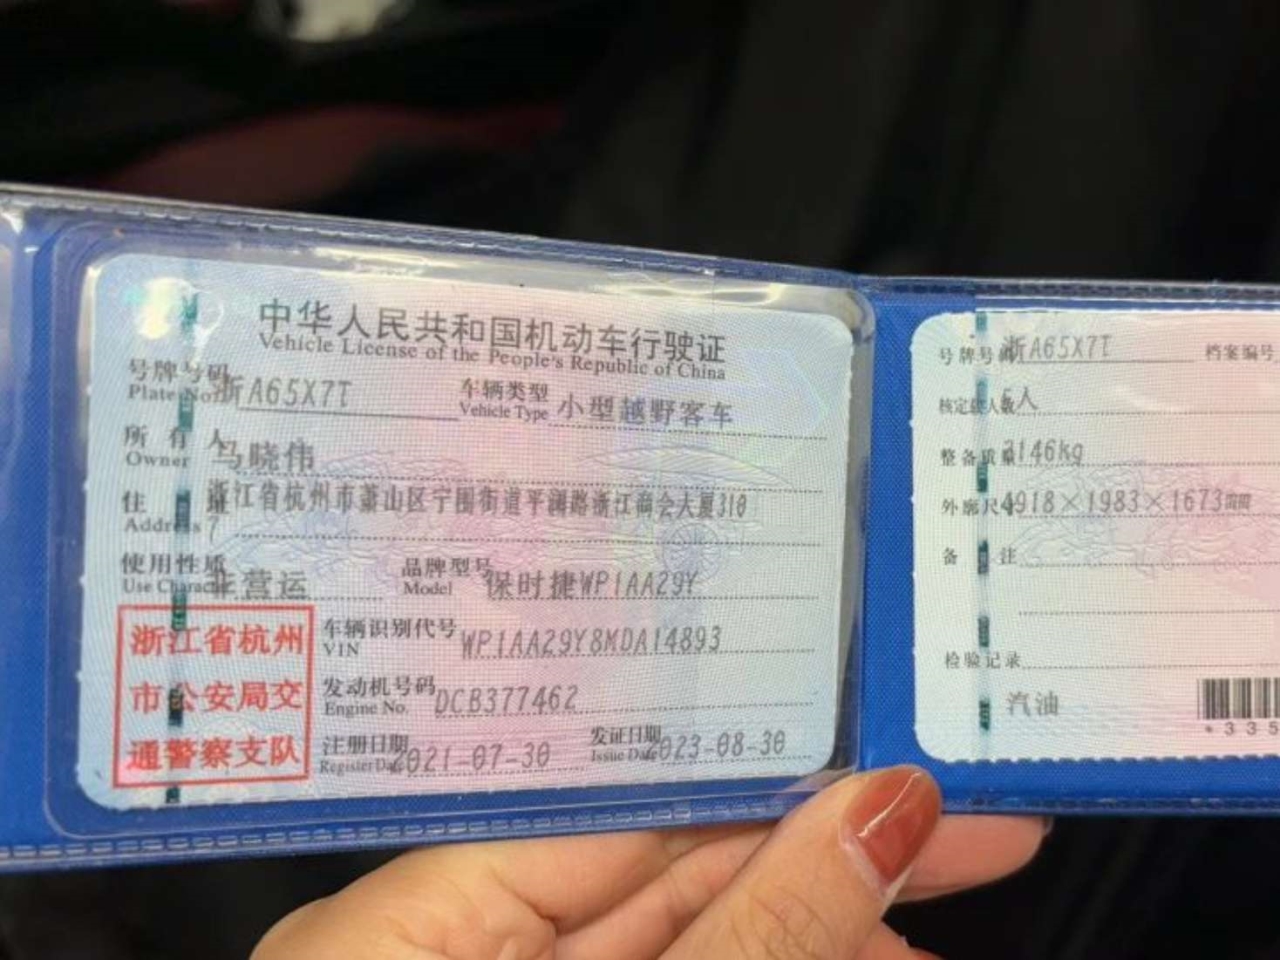 中华人民共和国机动车行驶证
Vehicle License of the People's Republic of China
号牌号码 浙A65X7T 车辆类型 小型越野客车
Plate No. Vehicle Type
所有人 马晓伟
Owner
住址 浙江省杭州市萧山区宁围街道平澜路浙江商会大厦310
Address 7
使用性质 非营运 品牌型号 保时捷WP1AA29Y
Use Character Model
浙江省杭州
市公安局交
通警察支队
车辆识别代号 WP1AA29Y8MDA14893
VIN
发动机号码 DCB377462
Engine No.
注册日期 2021-07-30 发证日期 2023-08-30
Register Date Issue Date
号牌号码 浙A65X7T 档案编号
核定载人数 5人
整备质量 2146kg
外廓尺寸 4918×1983×1673mm
备注
检验记录
汽油
*335